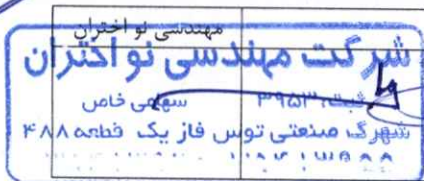 مهندسی نو اختران
شرکت مهندسی نو اختران
سهامی خاص ثبت: ۳۹۵۳
شهرک صنعتی توس فاز یک قطعه ۴۸۸